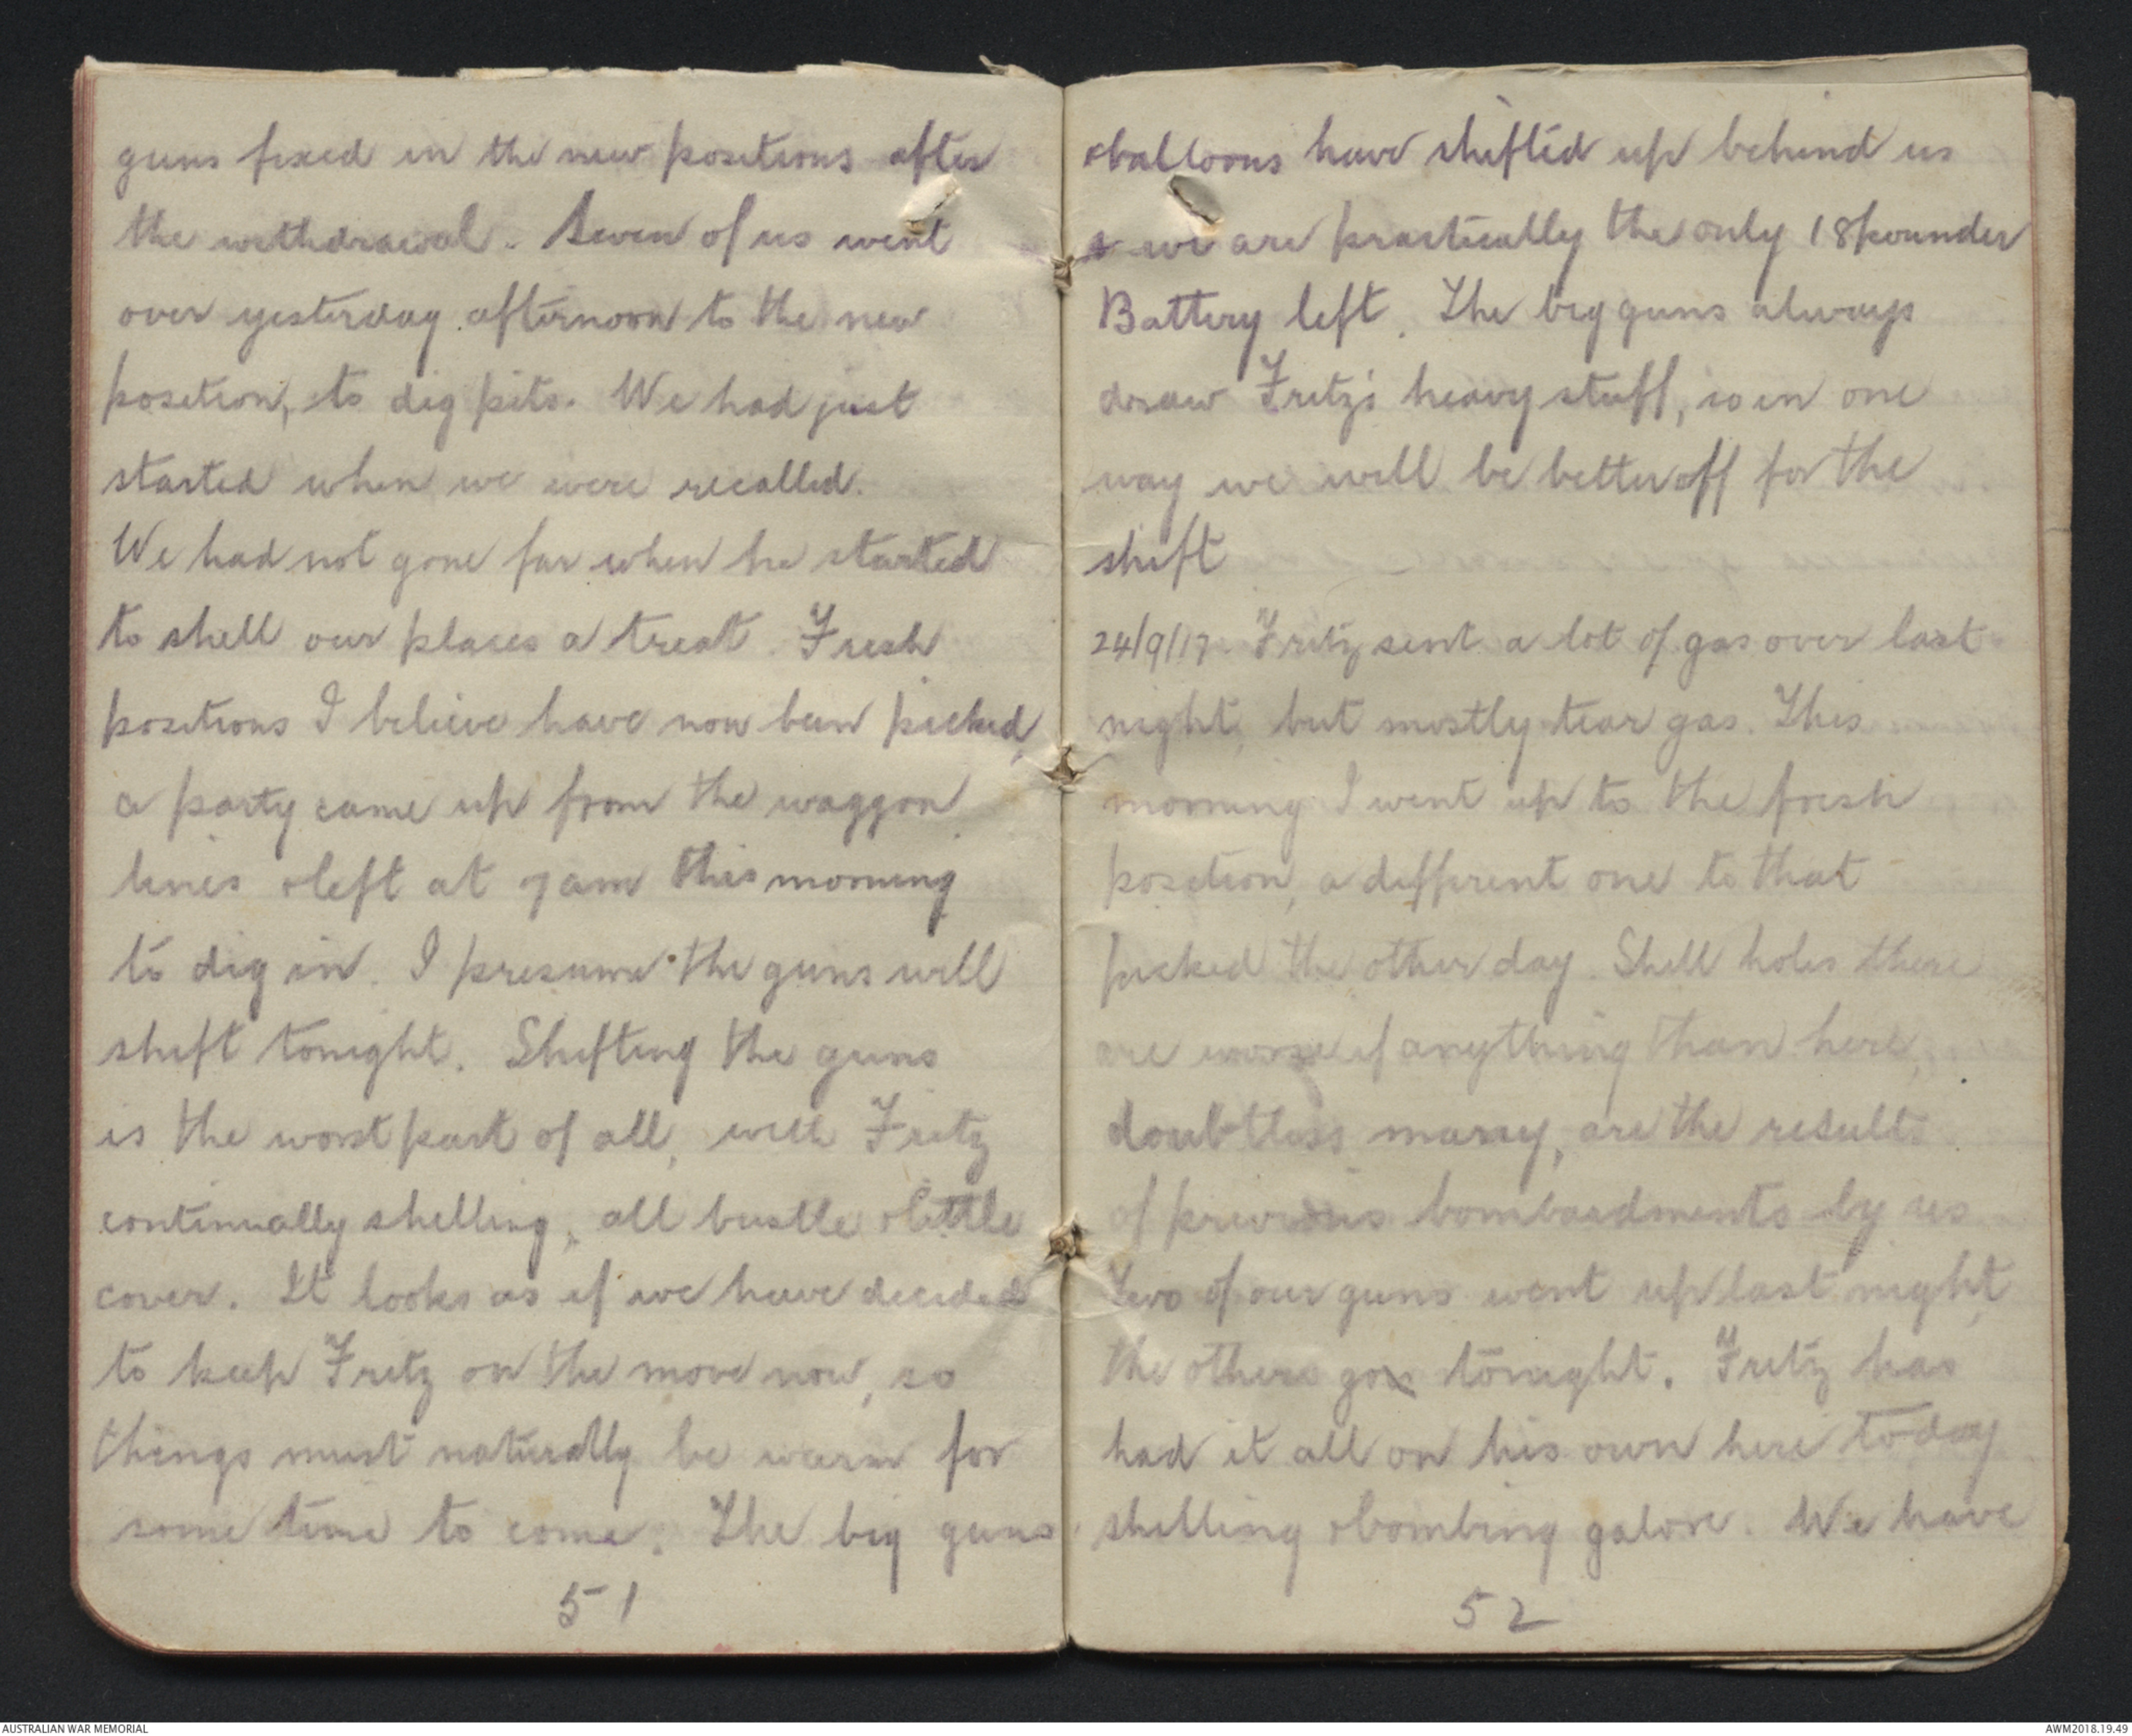 guns fixed in the new positions after
the withdrawal. Seven of us went
over yesterday afternoon to the new
position, to dig pits. We had just
started when we were recalled.
We had not gone far when he started
to shell our places a treat. Fresh
positions I believe have now been picked,
a party came up from the waggon
lines & left at 7am this morning
to dig in. I presume the guns will
shift tonight. Shifting the guns
is the worst part of all, with Fritz
continually shelling, all bustle & little
cover. It looks as if we have decided
to keep Fritz on the move now, so
things must naturally be warm for
some time to come. The big guns
51
& balloons have shifted up behind us
& we are practically the only 18 pounder
Battery left. The big guns always
draw Fritz's heavy stuff, so in one
way we will be better off for the
shift
24/9/17. Fritz sent a lot of gas over last
night, but mostly tear gas. This
morning I went up to the fresh
position, a different one to that
picked the other day. Shell holes there
are worse if anything than here,
doubtless many, are the results
of previous bombardments by us
Two of our guns went up last night,
the others go tonight. Fritz has
had it all on his own here today
shelling & bombing galore. We have
52
AUSTRALIAN WAR MEMORIAL
AWM2018.19.49